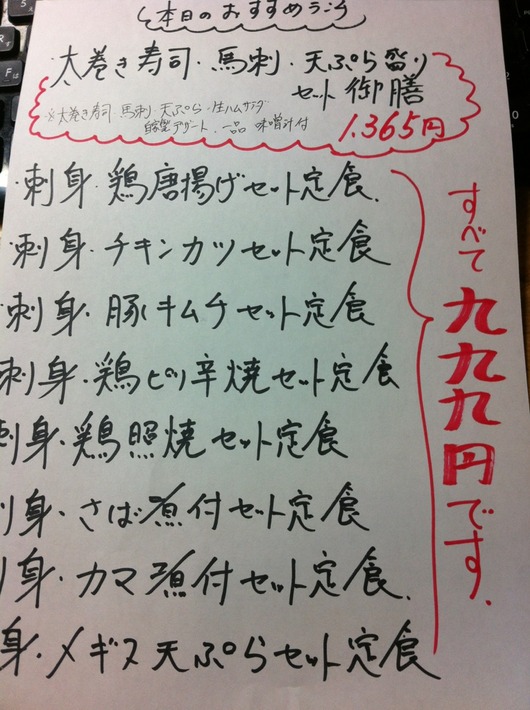 本日のおすすめランチ
太巻き寿司・馬刺・天ぷら盛り
セット御膳
※太巻き寿司・馬刺・天ぷら・生ハムサラダ
自家製デザート・一品・味噌汁付
1.365円
刺身・鶏唐揚げセット定食.
刺身・チキンカツセット定食
刺身・豚キムチセット定食
刺身・鶏ピリ辛焼セット定食
刺身・鶏照焼セット定食
刺身・さば煮付セット定食
身・カマ煮付セット定食.
身・メギス天ぷらセット定食
すべて九九九円です.